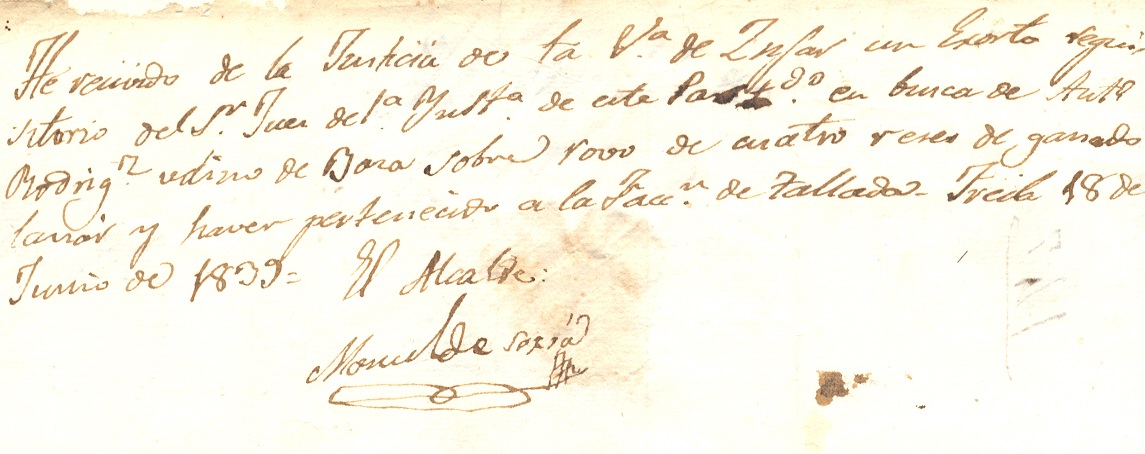 He recivido de la Justicia de la Vª de Zujar un Exorto requi
sitorio del Sr. Juez de 1ª Ynstª de este Partdº. en busca de Antº
Rodrigz. vecino de Baza sobre rovo de cuatro reses de ganado
lanar y haver pertenecido a la Facn. de Tallada - Freila 18 de
Junio de 1839 = El Alcalde:
Manuel de